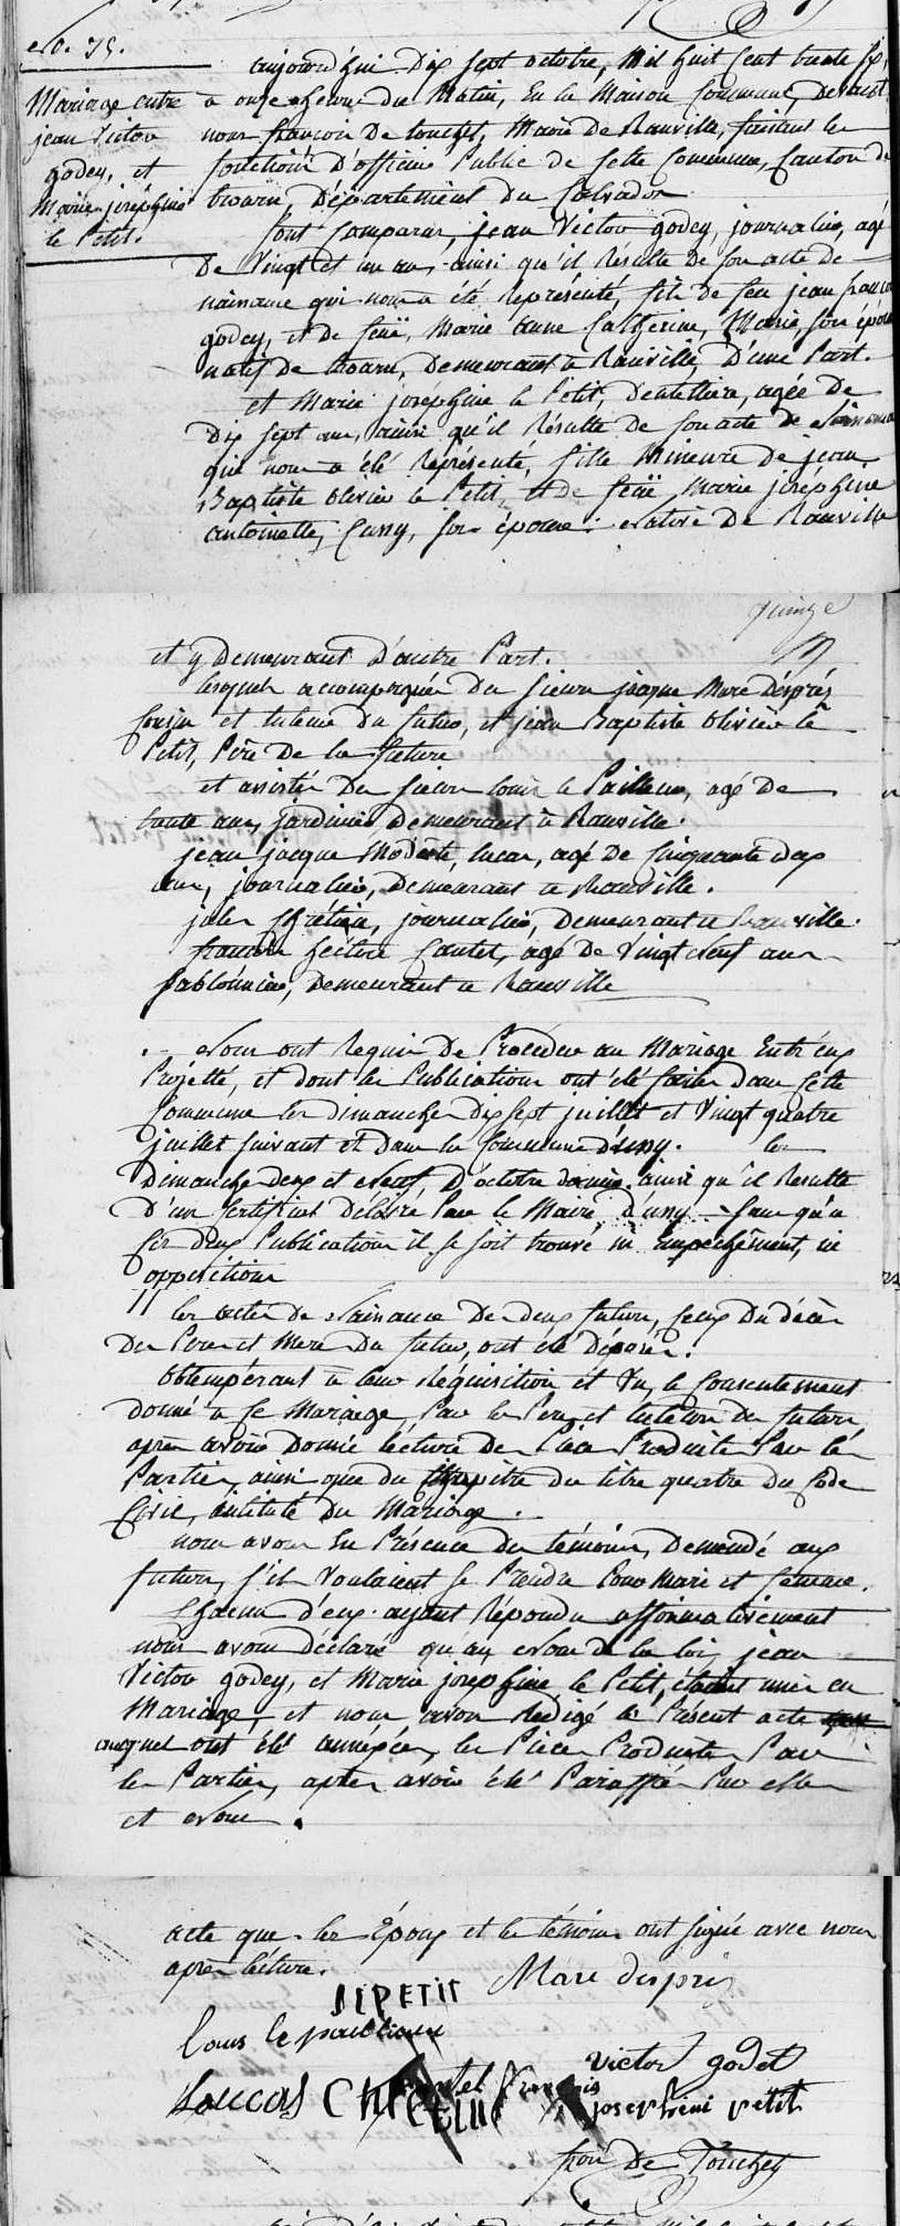 No. 15.
Mariage entre
jean Victor
godey, et
Marie joséphine
le Petit.
aujourd'hui Dix sept octobre, Mil huit Cent trente six,
a onze heures du Matin, En la Maison Commune, Devant
nous françois De touchet, Maire de Ranville, faisant les
fonctions D'officier Public de Cette Commune, Canton de
troarn, Département du Calvados
Sont Comparus, jean Victor godey, journalier, agé
De Vingt et un ans, ainsi qu'il Résulte de Son acte de
naissance qui nous a été Représenté, fils de feu jean françois
godey, et de feuë, Marie anne Catherine, Marie, Son épouse
natif de troarn, demeurant a Ranville, D'une Part.
et Marie joséphine le Petit, dentellière, agée De
Dix Sept ans, ainsi qu'il Résulte de Son acte de Naissance
qui nous a été Représenté, fille Mineure de jean
Baptiste Olivier le Petit, et de feuë, Marie joséphine
antoinette, Cussy, Son épouse: Native De Ranville
quinze
et y Demeurant D'autre Part.
lesquels accompagnés du Sieur jacque Marc Désprés
Cousin et tuteur du futur, et jean Baptiste Olivier le
Petit, Père De la future
et assistés Du Sieur louis le Pailleur, agé De
trente ans, jardinier Demeurant a Ranville.
jean jacque Modeste, lucas, agé De Cinquante deux
ans, journalier, Demeurant a Ranville.
jules Chrétien, journalier, Demeurant a Ranville.
françois hector Cautel, agé de Vingt Neuf ans
Sablonnier, Demeurant a Ranville
Nous ont Requis De Procéder au Mariage Entr'eux
Projetté, et dont les Publications ont été faites dans Cette
Commune les dimanches dix Sept juillet et Vingt quatre
juillet Suivant et dans la Commune d'ussy. les
Dimanches deux et Neuf, D'octobre dernier ainsi qu'il Résulte
D'un Certificat Délivré Par le Maire, d'ussy Sans qu'a
Ces deux Publications il se Soit trouvé ni Empêchement, ni
opposition
les actes de Naissance De deux futurs, Ceux Du décès
Des Père et Mere Du futur, ont été Déposés.
Obtempérant a leur Réquisition et Vu, le Consentement
donné a Ce Mariage Par les Père et tuteur des futurs
après avoir Donné lécture Des Pièces Produites Par les
Parties, ainsi que du Chapitre du titre quatre Du Code
Civil, intitulé Du Mariage.
nous avons En Présence des témoins, Demandé aux
futurs, S'ils Voulaient Se Prendre Pour Mari et femme.
Chacun d'eux ayant Répondu affirmativement
nous avons déclaré qu'au Nom de la loi, jean
Victor godey, et Marie joséphine le Petit, étaient unis en
Mariage, et nous avons Rédigé le Présent acte
auquel ont été annéxées, les Pièces Produites Par
les Parties, après avoir été Paraffées Par elles
et Nous.
acte que les Époux et les témoins ont Signé avec nous
après lécture.
Marc desprès
LEPETIT
Louis le pailleur
Victor godet
Loucas CHRETIEN Cautel François
josephini petit
frois De Touchet